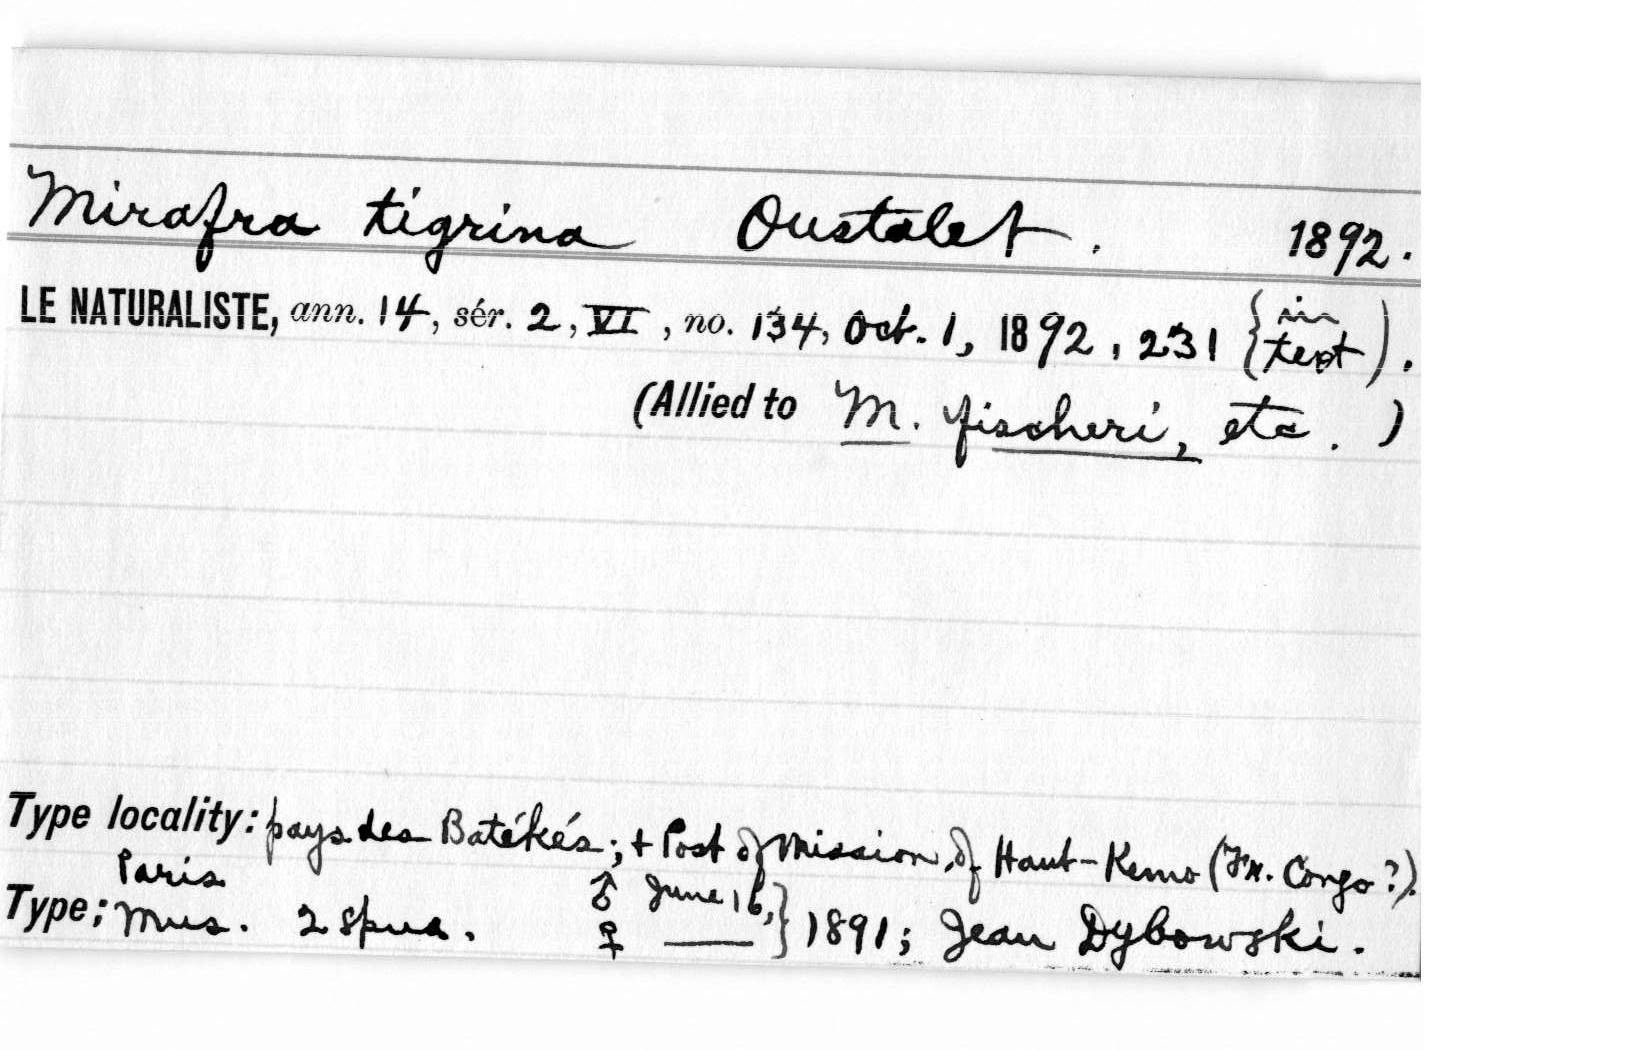 Mirafra tigrina Oustalet. 1892.
LE NATURALISTE, ann. 14, sér. 2, VI, no. 134, Oct. 1, 1892, 231 {in text).
(Allied to M. fischeri, etc.)
Type locality: pays des Batékés; + Post of Mission of Haut-Kemo (Fr. Congo?).
Type: Paris Mus. 2 spms. ♂ June 16, ♀ —— } 1891; Jean Dybowski.